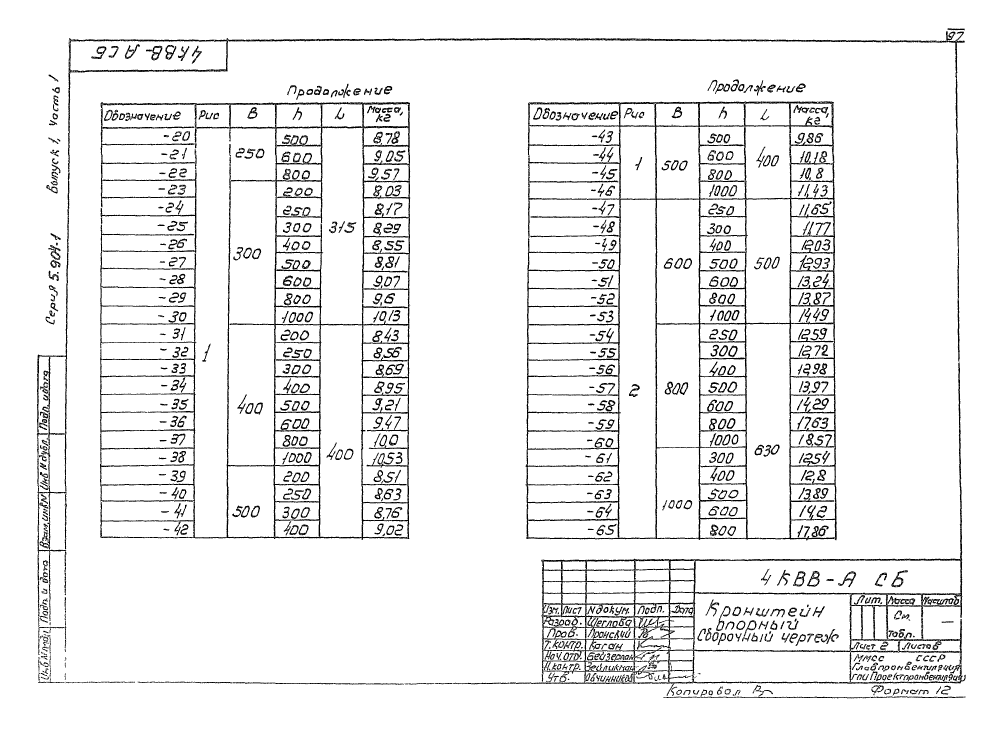 97
4КВВ-А СБ
Серия 5.904-1 Выпуск 1, Часть 1
Продолжение
Обозначение Рис В h L Масса, кг
-20 1 250 500 315 8,78
-21 600 9,05
-22 800 9,57
-23 300 200 8,03
-24 250 8,17
-25 300 8,29
-26 400 8,55
-27 500 8,81
-28 600 9,07
-29 800 9,6
-30 1000 10,13
-31 400 200 400 8,43
-32 250 8,56
-33 300 8,69
-34 400 8,95
-35 500 9,21
-36 600 9,47
-37 800 10,0
-38 1000 10,53
-39 500 200 8,51
-40 250 8,63
-41 300 8,76
-42 400 9,02
Продолжение
Обозначение Рис В h L Масса, кг
-43 1 500 500 400 9,86
-44 600 10,18
-45 800 10,8
-46 1000 11,43
-47 2 600 250 500 11,65
-48 300 11,77
-49 400 12,03
-50 500 12,93
-51 600 13,24
-52 800 13,87
-53 1000 14,49
-54 800 250 630 12,59
-55 300 12,72
-56 400 12,98
-57 500 13,97
-58 600 14,29
-59 800 17,63
-60 1000 18,57
-61 1000 300 12,54
-62 400 12,8
-63 500 13,89
-64 600 14,2
-65 800 17,86
Инв.№подл Подп. и дата Взам.инв.№ Инв.№дубл. Подп. и дата
4КВВ-А СБ
Изм. Лист № докум. Подп. Дата
Разраб. Щеглова
Пров. Пронский
Т.контр. Коган
Нач.отд.
Н.контр.
Утв. Овчинников
Кронштейн
опорный
Сборочный чертеж
Лит. Масса Масштаб
См. табл. —
Лист 2 Листов
ММСС СССР
Главпромвентиляция
ГПИ Проектпромвентиляция
Копировал Формат 12